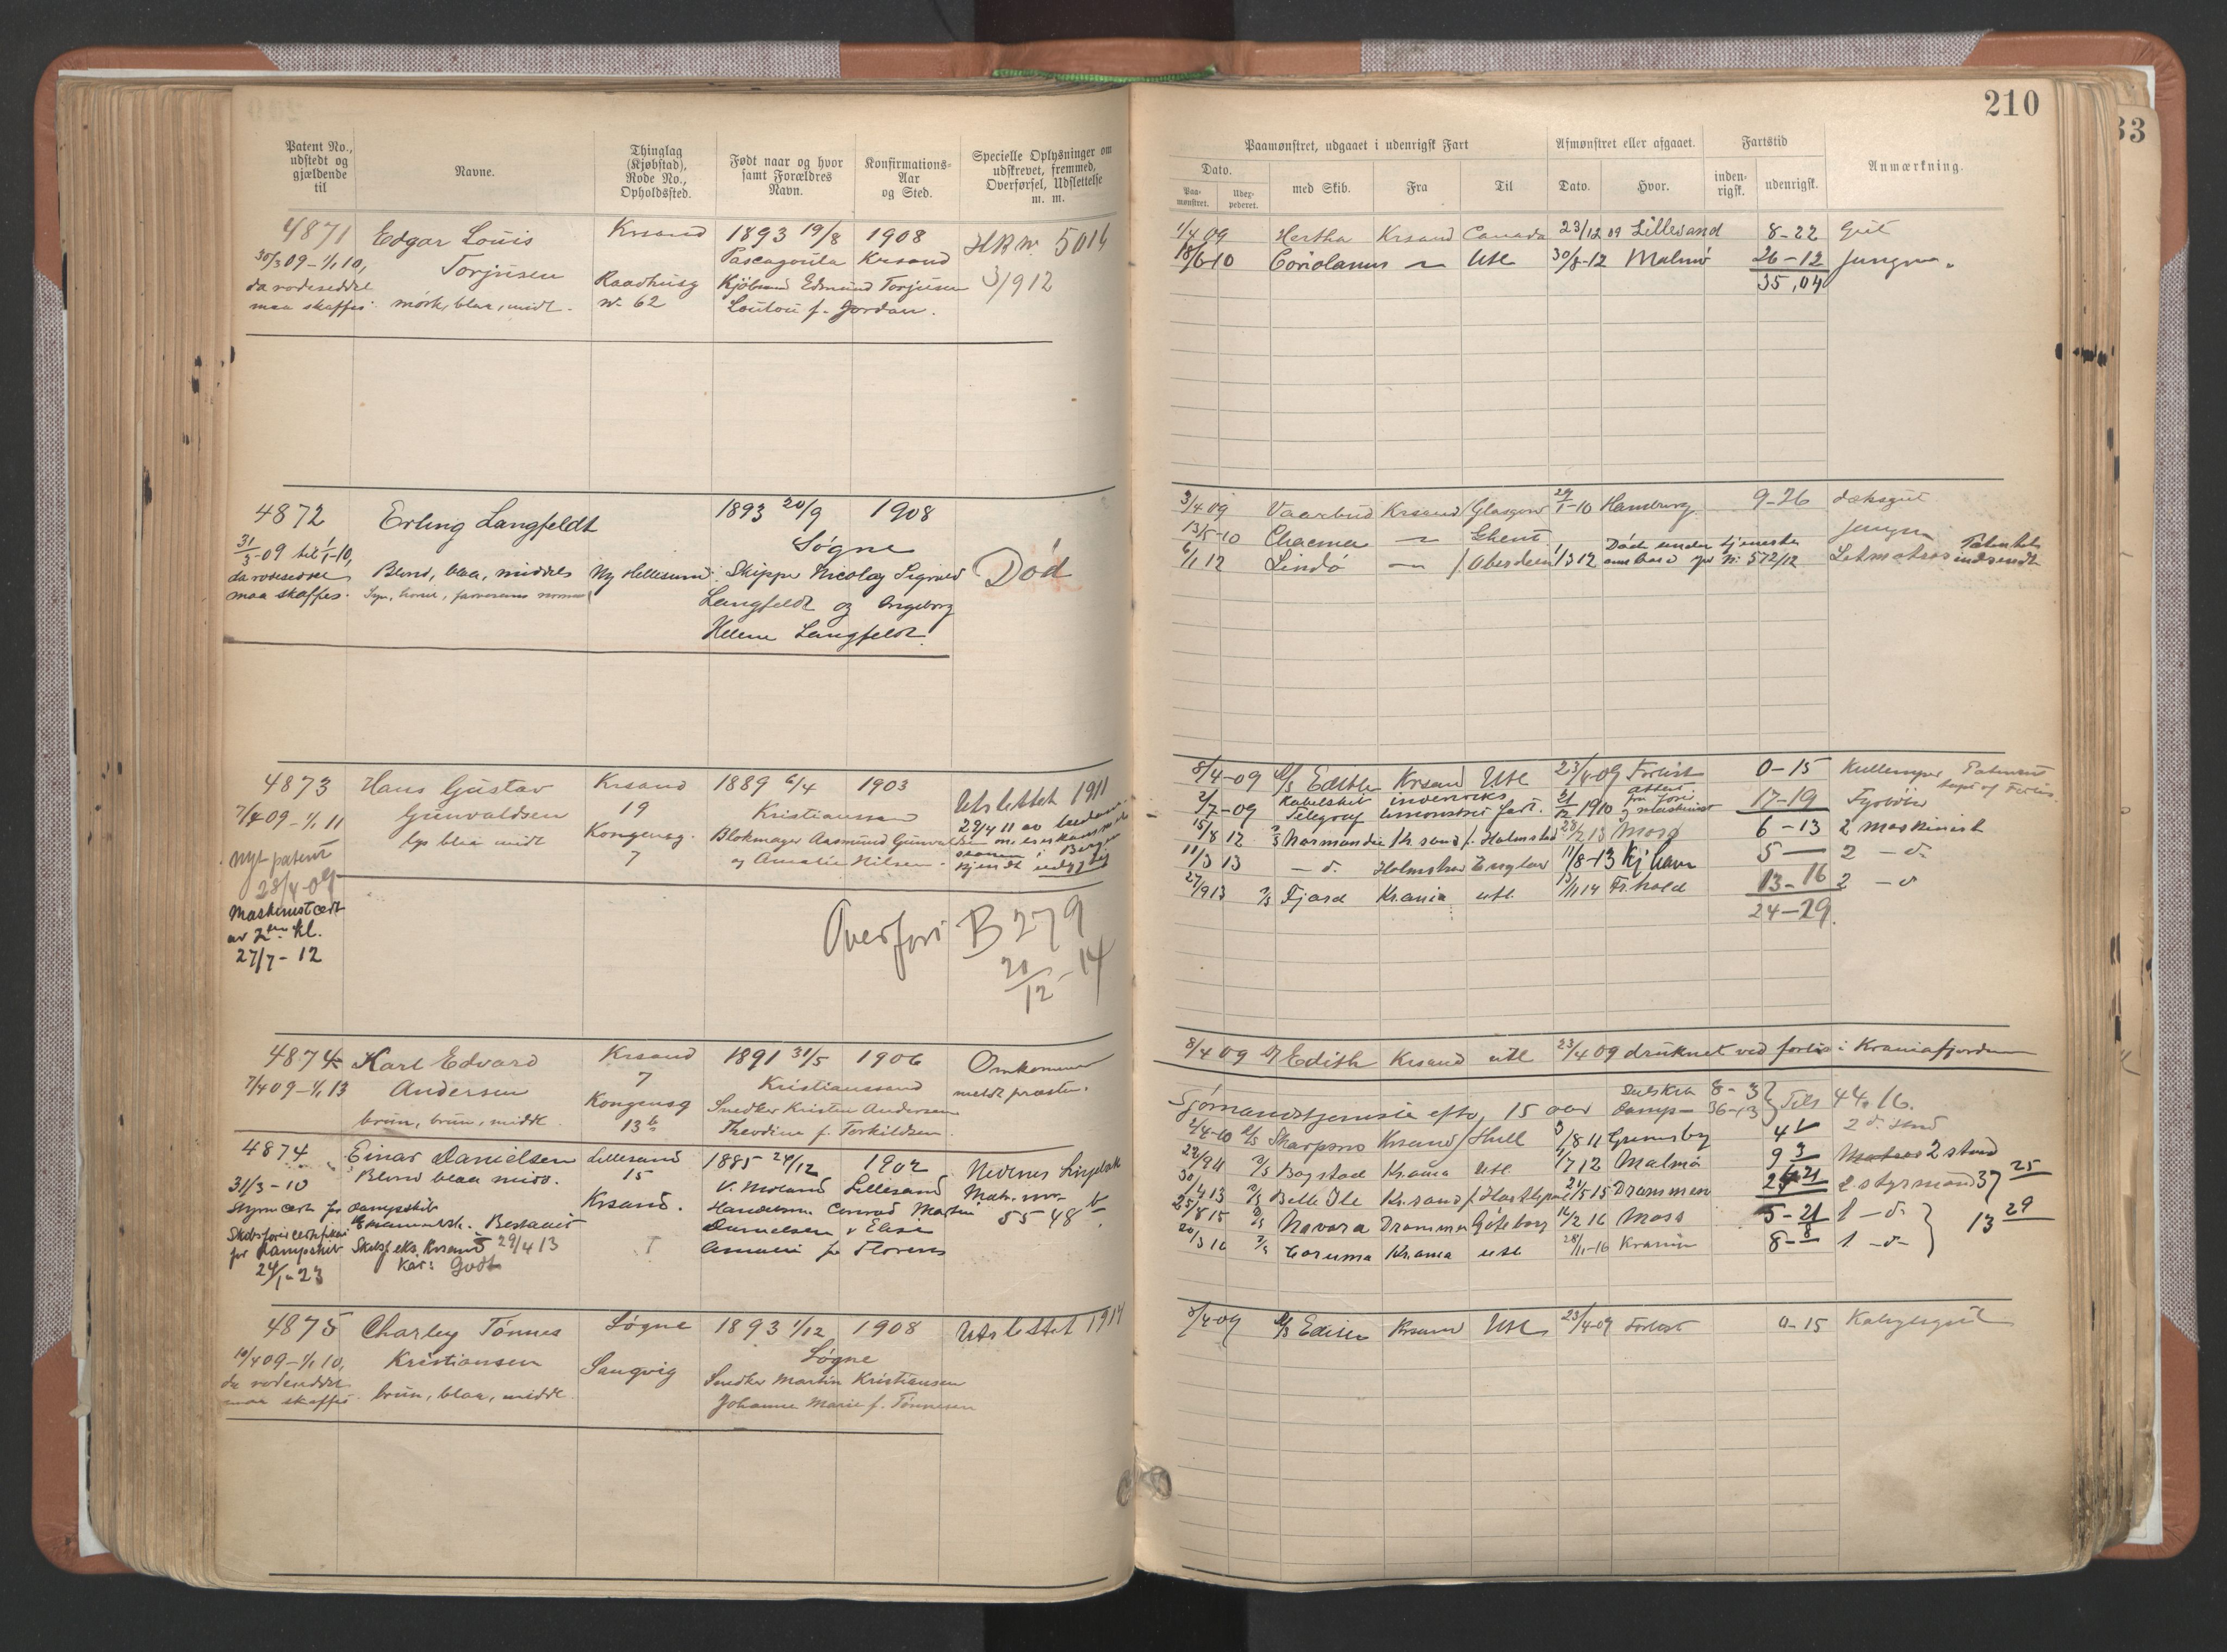 210
33
Patent No., udstedt og gjældende til
Navne.
Thinglag (Kjøbstad), Rode No., Opholdssted.
Født naar og hvor samt Forældres Navn.
Konfirmations-Aar og Sted.
Specielle Oplysninger om udskrevet, fremmed, Overførsel, Udslettelse m. m.
Paamønstret, udgaaet i udenrigsk Fart
Afmønstret eller afgaaet.
Fartstid
Anmærkning.
Dato.
Paa-mønstret.
med Skib.
Fra
Til
Dato.
Hvor.
inden-rigsk.
udenrigsk.
4871 Edgar Louis Krsand 1893 19/8 1908 5014
30/3 09 - 1/1 10, Torjusen Pascagoula Krsand 3/9 12
da rodeseddel Raadhusg Kjøbmd Edmund Torjusen
maa skaffes. mørk, blaa, midt. No. 62 f. Jordan.
1/4 09 Hertha Krsand Canada 23/12 09 Lillesand 8-22 Gut
18/6 10 Coriolanus Utl 30/8-12 Malmø 26-12 Jungm.
35,04
4872 Erling Langfeldt 1893 20/9 1908
31/3-09 til 1/1-10, Søgne
da rodeseddel Blond, blaa, middels Ny Hellesund Skipper Nicolay Sigvard Død
maa skaffes. Syn, hørsel, farvesans normal Langfeldt og Ingeborg
Helene Langfeldt.
3/4 09 Vaarbud Krsand Glasgow 29/1-10 Hamburg 9-26 dæksgut
13/5-10 Chacma Ghent Jungm
6/1 12 Lindø Aberdeen 1/3 12 Døde under tjeneste ombord No 572/12 Letmatros Patentet indsendt
4873 Hans Gustav Krsand 1889 6/4 1903 Utslettet 1911
7/4 09 - 1/1 11 Gunvaldsen 19 Kristianssand 29/4 11 av
lys blaa midt Kongensg. Blokmager Aasmund Gunvaldsen
Nyt patent 7 og Amalie Nilsen. Bergen
28/4-09 kjendt
Maskinistcert
av 2den kl.
27/7-12
Overført B 279
20/12-14
8/4-09 D/S Edith Krsand Utl 23/4-09 Forlist 0-15 Kullemper Patentet tapt v/ Forlis.
2/7-09 Kabelskib indenriks
Telegraf fart. 21/12 1910 maskinist 17-19 Fyrbøter
15/8 12 D/S Normandie Kr.sand f. Halmstad 28/2 13 Moss 6-13 2 maskinist
11/3 13 - d. Holmstrand England 11/8-13 Kjhavn 5- 2 - d-
27/9 13 D/S Fjord Krania utl. 13/11 14 Fr.hald 13-16 2 - d
24-29.
4874 Karl Edvard Krsand 1891 31/5 1906 Omkommen
7/4 09 - 1/1 13 Andersen 7 Kristianssand meldt præsten.
Kongensg Snedker Kristen Andersen
brun, brun, middl. 13 b Theodine f. Torkildsen.
8/4 09 D/S Edith Krsand utl 23/4 09 druknet ved forlis i Kraniafjorden
4874 Einar Danielsen Lillesand 1885 24/12 1902 Nedenes
31/3-10 Blond blaa midd. 15 V. Moland Lillesand Matr. no
Styrm cert for dampskib Krsand. Conrad Martin 5548 b
Skibsførercertifikat Bestaaet Danielsen Elise
for Dampskib Skibsf. eks. Krsand 29/4 13 Amalie f. Florens
24/1-23 Kar: Godt
Sjømandstjeneste efter 15 aar Seilskib 8-3 Damp- 36-13 Tils 44,16.
2/4-10 D/S Skarpsno Krsand Hull 3/8 11 Grimsby 2 d. stmd
22/9 11 D/S Bogstad Krania Utl. 1/7 12 Malmø 9 3 2 stmd
30/4 13 D/S Belle Ile Kr.sand f. Hartlepool 21/5 15 Drammen 2 styrmand 37 25
25/8 15 D/S Navarra Drammen Gøteborg 16/2 16 Moss 5-21 1 - d- 13 29
20/3 16 D/S Krania utl 28/11-16 Krania 8-8 1 - d-
4875 Charley Tønnes Søgne 1893 1/12 1908 Utslettet 1914
10/4 09 - 1/1 10, Kristiansen Søgne
da rodeseddel Langvig Snedker Martin Kristiansen
maa skaffes. brun, blaa, middl. Johanne Marie f. Tønnesen
8/4-09 D/S Edith Krsand Utl 23/4-09 Forlist 0-15 Kahytsgut